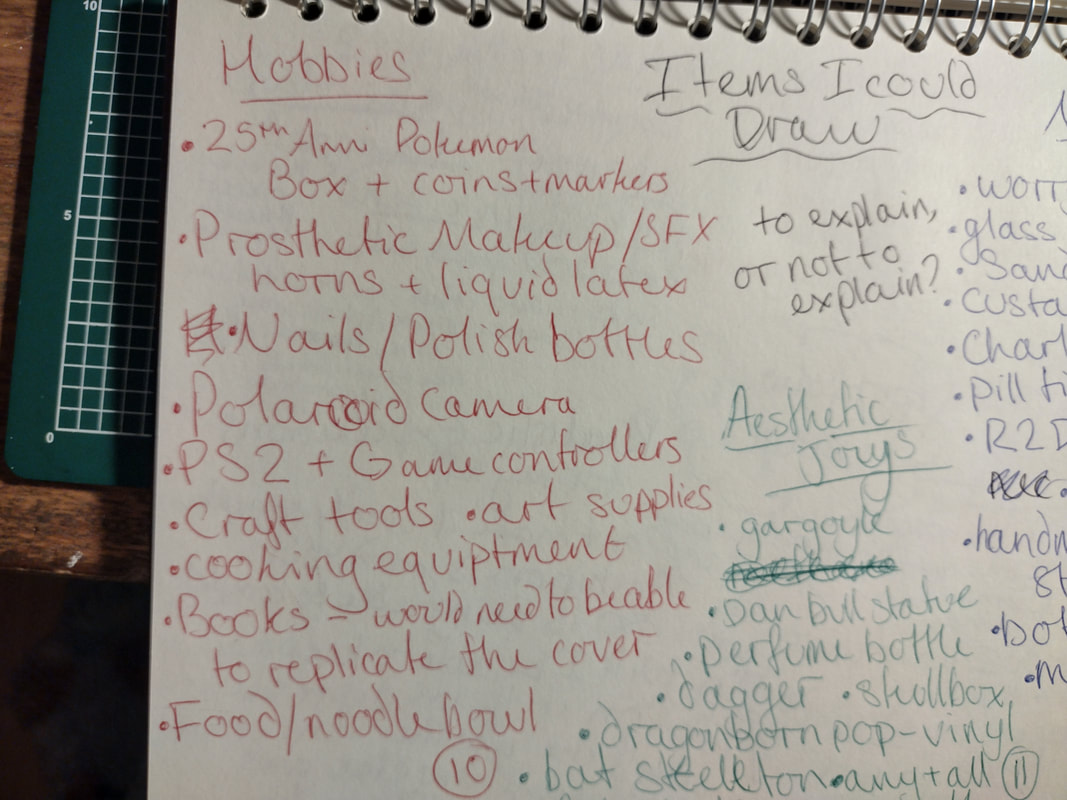 Hobbies
• 25th Anni Pokemon
Box + coins + markers
• Prosthetic Makeup/SFX
horns + liquid latex
• Nails/Polish bottles
• Polaroid Camera
• PS2 + Game controllers
• Craft tools • art supplies
• cooking equiptment
• Books – would need to be able
to replicate the cover
• Food/noodle bowl
10
Items I could
Draw
to explain,
or not to
explain?
Aesthetic
Joys
• gargoyle
• Dan bull statue
• perfume bottle
• dagger • skullbox
• dragonborn pop-vinyl
• bat skeleton • any + all 11
• glass
• pill
• R2D
10
5
0